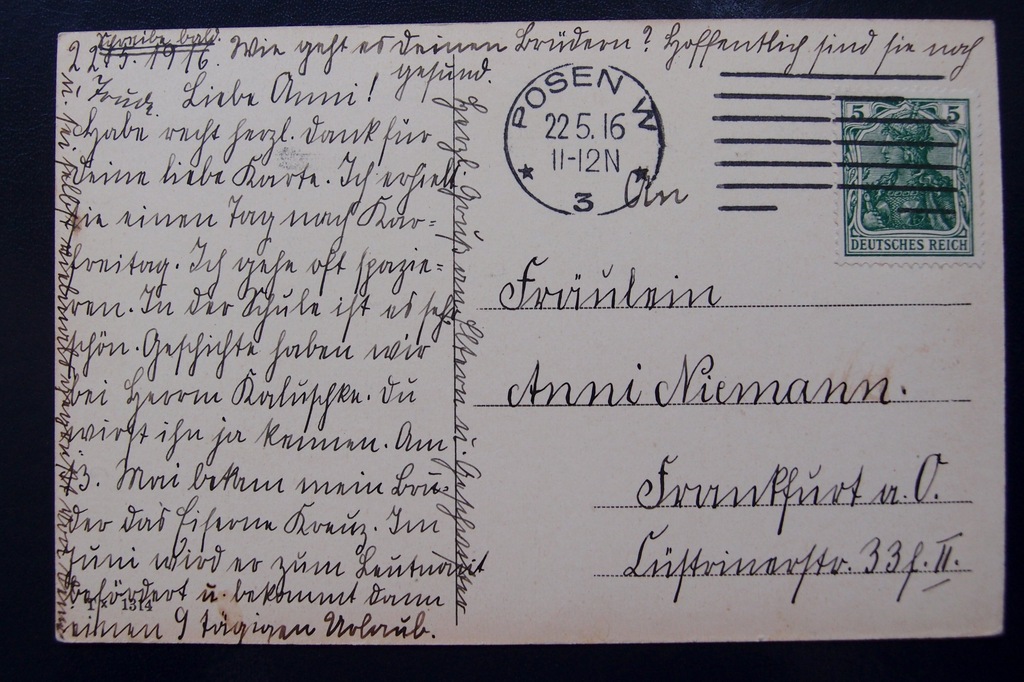 Schreibe bald.
22.5.1916. Wie geht es Deinen Brüdern? Hoffentlich sind sie noch
gesund.
Liebe Anni!
Habe recht herzl. Dank für
Deine liebe Karte. Ich erhielt
sie einen Tag nach Kar=
freitag. Ich gehe oft spazie=
ren. In der Schule ist es sehr
schön. Geschichte haben wir
bei Herrn Kaluschke. Du
wirst ihn ja kennen. Am
13. Mai bekam mein Bru-
der das Eiserne Kreuz. Im
Juni wird er zum Leutnant
befördert u. bekommt dann
einen 9 tägigen Urlaub.
Herzl. Gruß an Eltern u. Geschwister
u. sei selbst vielmals gegrüßt von Deiner
Trude
T × 1314
POSEN W
22 5. 16
11-12N
* 3 *
5 5
DEUTSCHES REICH
An
Fräulein
Anni Niemann.
Frankfurt a. O.
Cüstrinerstr. 33 f. II.